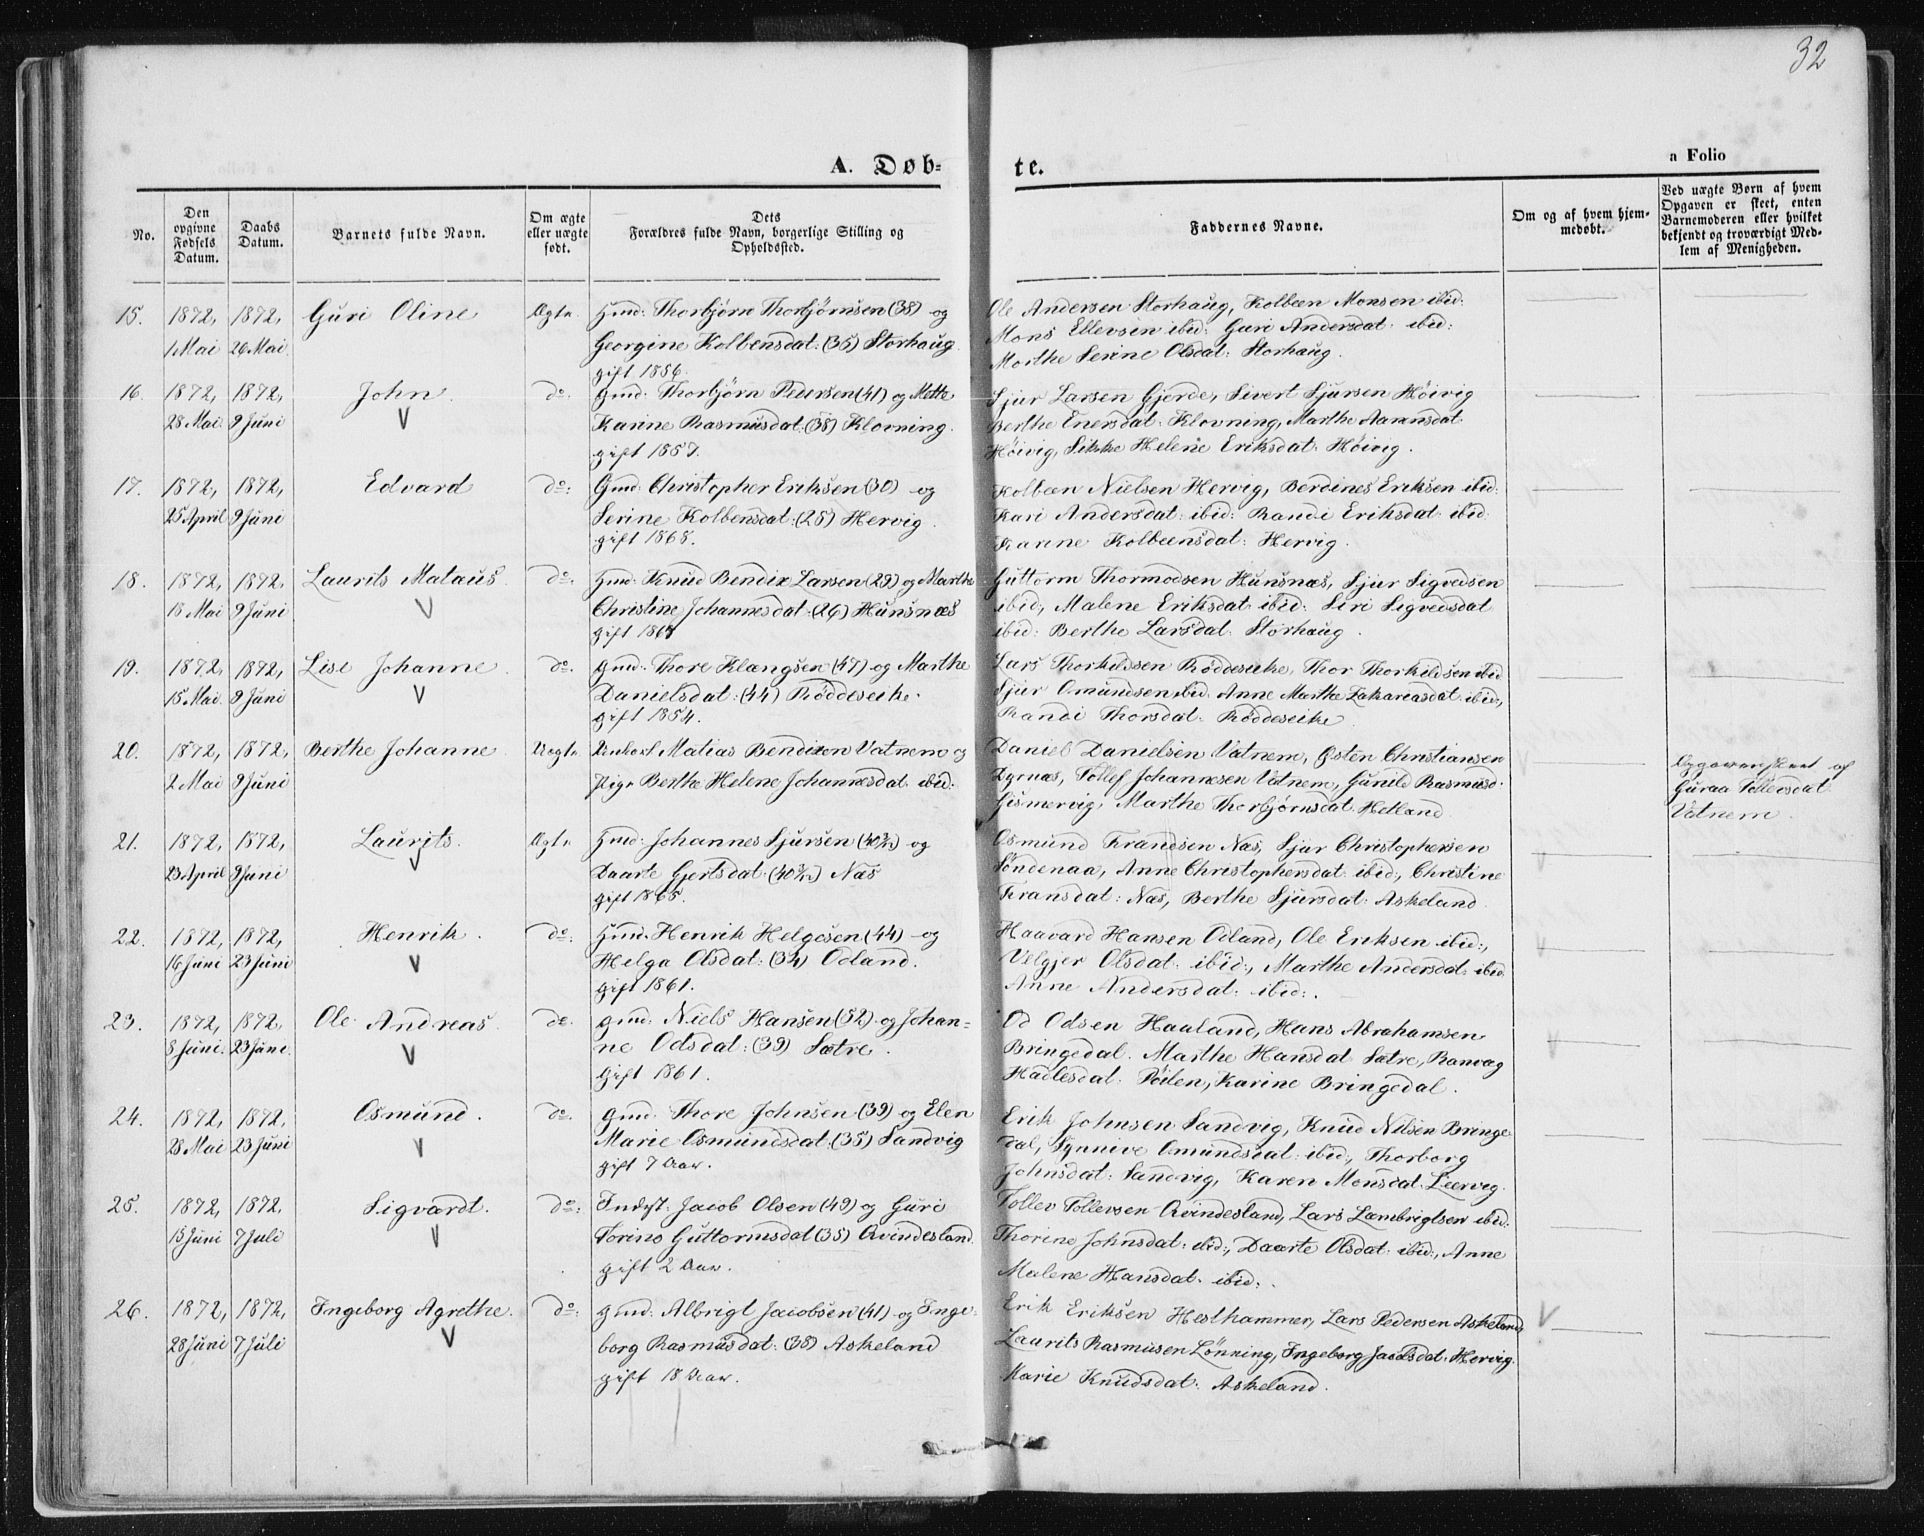 32
A. Døb=
te.
a Folio
No.
Den opgivne Fødsels Datum.
Daabs Datum.
Barnets fulde Navn.
Om ægte eller uægte født.
Dets Forældres fulde Navn, borgerlige Stilling og Opholdssted.
Faddernes Navne.
Om og af hvem hjemmedøbt.
Ved uægte Børn af hvem Opgaven er skeet, enten Barnemoderen eller hvilket bekjendt og troværdigt Medlem af Menigheden.
15. 1872, 1872, Guri Oline Ægte. Gmd: Thorbjørn Thorbjørnsen (38) og
1 Mai 26 Mai. Georgine Kolbensdat: (36) Storhaug.
gift 1856.
Ole Andersen Storhaug, Kolbeen Monsen ibid:
Mons Ellevsen ibid: Guri Andersdat: ibid:
Marthe Serine Olsdat: Storhaug.
16. 1872, 1872, John. do. Gmd: Thorbjørn Pedersen (41) og Mette
28 Mai. 9 Juni V Karine Rasmusdat: (38) Klovning.
gift 1857.
Sjur Larsen Gjerde, Sivert Sjursen Høivig
Berthe Enersdat: Klovning, Marthe
Høivig, Sikke Helene Eriksdat: Høivig.
17. 1872, 1872, Edvard do: Gmd: Christopher Eriksen (30) og
25 April 9 Juni Serine Kolbensdat: (25) Hervig.
gift 1868.
Kolbeen Nielsen Hervig, Berdines Eriksen ibid:
Kari Andersdat: ibid: Randi Eriksdat: ibid:
Karine Kolbeensdat: Hervig.
18. 1872, 1872, Laurits Mataus. do: Gmd: Knud Bendix Larsen (29) og Marthe
18 Mai 9 Juni V Christine Johannesdat: (26) Hunsnæs
gift
Guttorm Thormodsen Hunsnæs, Sjur Sigvedsen
ibid, Malene Eriksdat: ibid: Siri Sigvedsdat
ibid: Berthe Larsdat: Storhaug.
19. 1872, 1872, Lise Johanne. do. Gmd: Thore Klangsen (47) og Marthe
15 Mai. 9 Juni V Danielsdat: (44) Røddeseike.
gift 1854.
Lars Thorkildsen Røddeseike, Thor Thorkildsen ibid
Sjur Omundsen ibid. Anne Marthe Zakariasdat: ibid:,
Randi Thorsdat: Røddeseike.
20. 1872, 1872, Berthe Johanne. Uægte Matias Bendixen Vatnem og
2 Mai 9 Juni Pige Berthe Helene Johannesdat: ibid:
Daniel Danielsen Vatnem, Østen Christiansen
Dyrnæs, Tollef Johannesen Vatnem, Gunild Rasmusd:
Gismervig, Marthe Thorbjørnsdat: Hetland.
Opgaven skeet af
Guraa Tollevsdat
Vatnem.
21. 1872, 1872, Laurits. Ægte. Gmd: Johannes Sjursen og
23 April 9 Juni V Daarte Gjertsdat: Næs
gift 1865.
Osmund Frandsen Næs, Sjur Christophersen
Søndenaa, Anne Christophersdat: ibid:, Christine
Fransdat: Næs, Berthe Sjursdat: Askeland.
22. 1872, 1872, Henrik. do: Gmd. Henrik Helgesen (44) og
16 Juni 23 Juni V Helga Olsdat: (34) Odland.
gift 1861.
Haavard Hansen Odland, Ole Eriksen ibid:,
Velgjer Olsdat: ibid:, Marthe Andersdat: ibid
Anne Andersdat: ibid:.
23. 1872, 1872, Ole Andreas. do. Gmd: Niels Hansen (52) og Johan=
8 Juni. 23 Juni. V ne Odsdat: (39) Sætre.
gift 1861.
Od Odsen Haaland, Hans Abrahamsen
Bringedal. Marthe Hansdat Sætre, Ranvæg
Hadlesdat: Karine Bringedal.
24. 1872, 1872, Osmund. do. Gmd: Thore Johnsen (39) og Elen
28 Mai 23 Juni V Marie Osmundsdat: (35) Sandvig
gift 7 Aar.
Erik Johnsen Sandvig, Knud Nilsen Bringe
dal, Synnive Omundsdat: ibid:, Thorborg
Johnsdat: Sandvig, Karen Monsdat: Leervig.
25. 1872, 1872, Sigvardt. do: Indst: Jacob Olsen (49) og Guri
15 Juni 7 Juli V Torine Guttormsdat (35) Qvindesland.
gift 2 Aar.
Tollev Tollevsen Qvindesland, Lars Lambrigtsen ibid:
Thorine Johnsdat: ibid:, Daarte Olsdat: ibid:, Anne
Malene Hansdat: ibid:.
26. 1872, 1872, Ingeborg Agrethe. do: Gmd: Albrigt Jacobsen (41) og Inge=
28 Juni 7 Juli V borg Rasmusdat: (38) Askeland
gift 18 Aar.
Erik Eriksen Hesthammer, Lars Pedersen Askeland,
Laurits Rasmusen Lønning, Ingeborg Jacobsdat: Hervig.
Marie Knudsdat: Askeland.